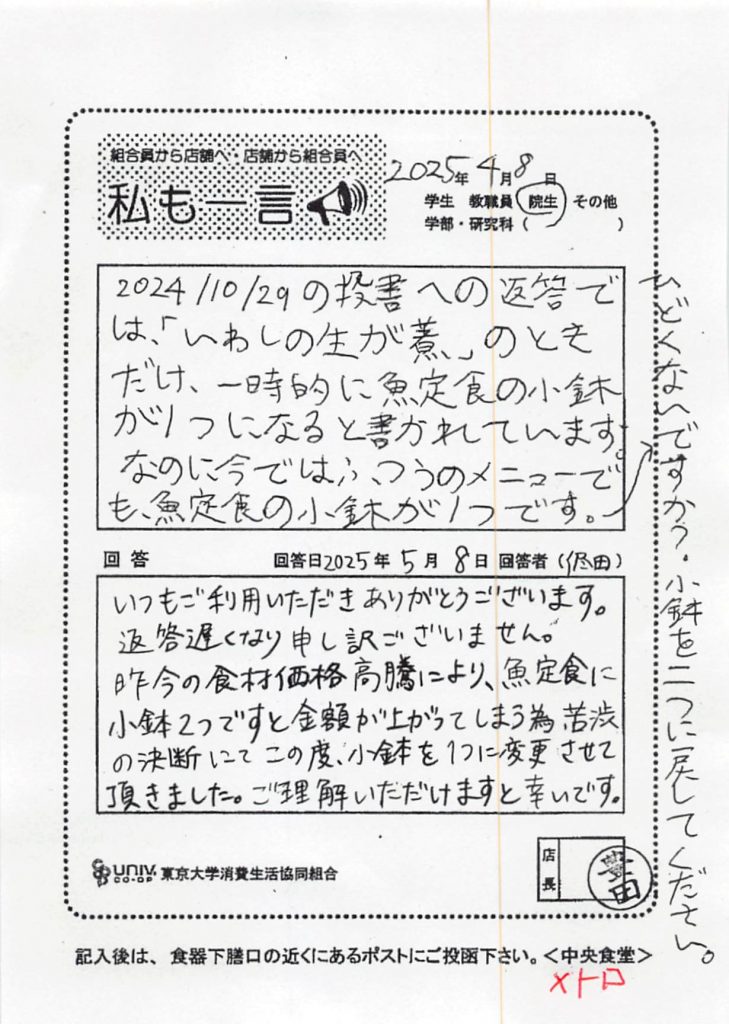 組合員から店舗へ・店舗から組合員へ
私も一言
2025年4月8日
学生 教職員 院生 その他
学部・研究科 ( )
2024/10/29の投書への返答で
は、「いわしの生が煮」のとき
だけ、一時的に魚定食の小鉢
が1つになると書かれています。
なのに今ではふつうのメニューで
も、魚定食の小鉢が1つです。
ひどくないですか?小鉢を二つに戻してください。
回答 回答日2025年5月8日 回答者(保田)
いつもご利用いただきありがとうございます。
返答遅くなり申し訳ございません。
昨今の食材価格高騰により、魚定食に
小鉢2つですと金額が上がってしまう為苦渋
の決断にてこの度、小鉢を1つに変更させて
頂きました。ご理解いただけますと幸いです。
UNIV.
CO-OP
東京大学消費生活協同組合
店長
豊田
記入後は、食器下膳口の近くにあるポストにご投函下さい。<中央食堂>
メトロ